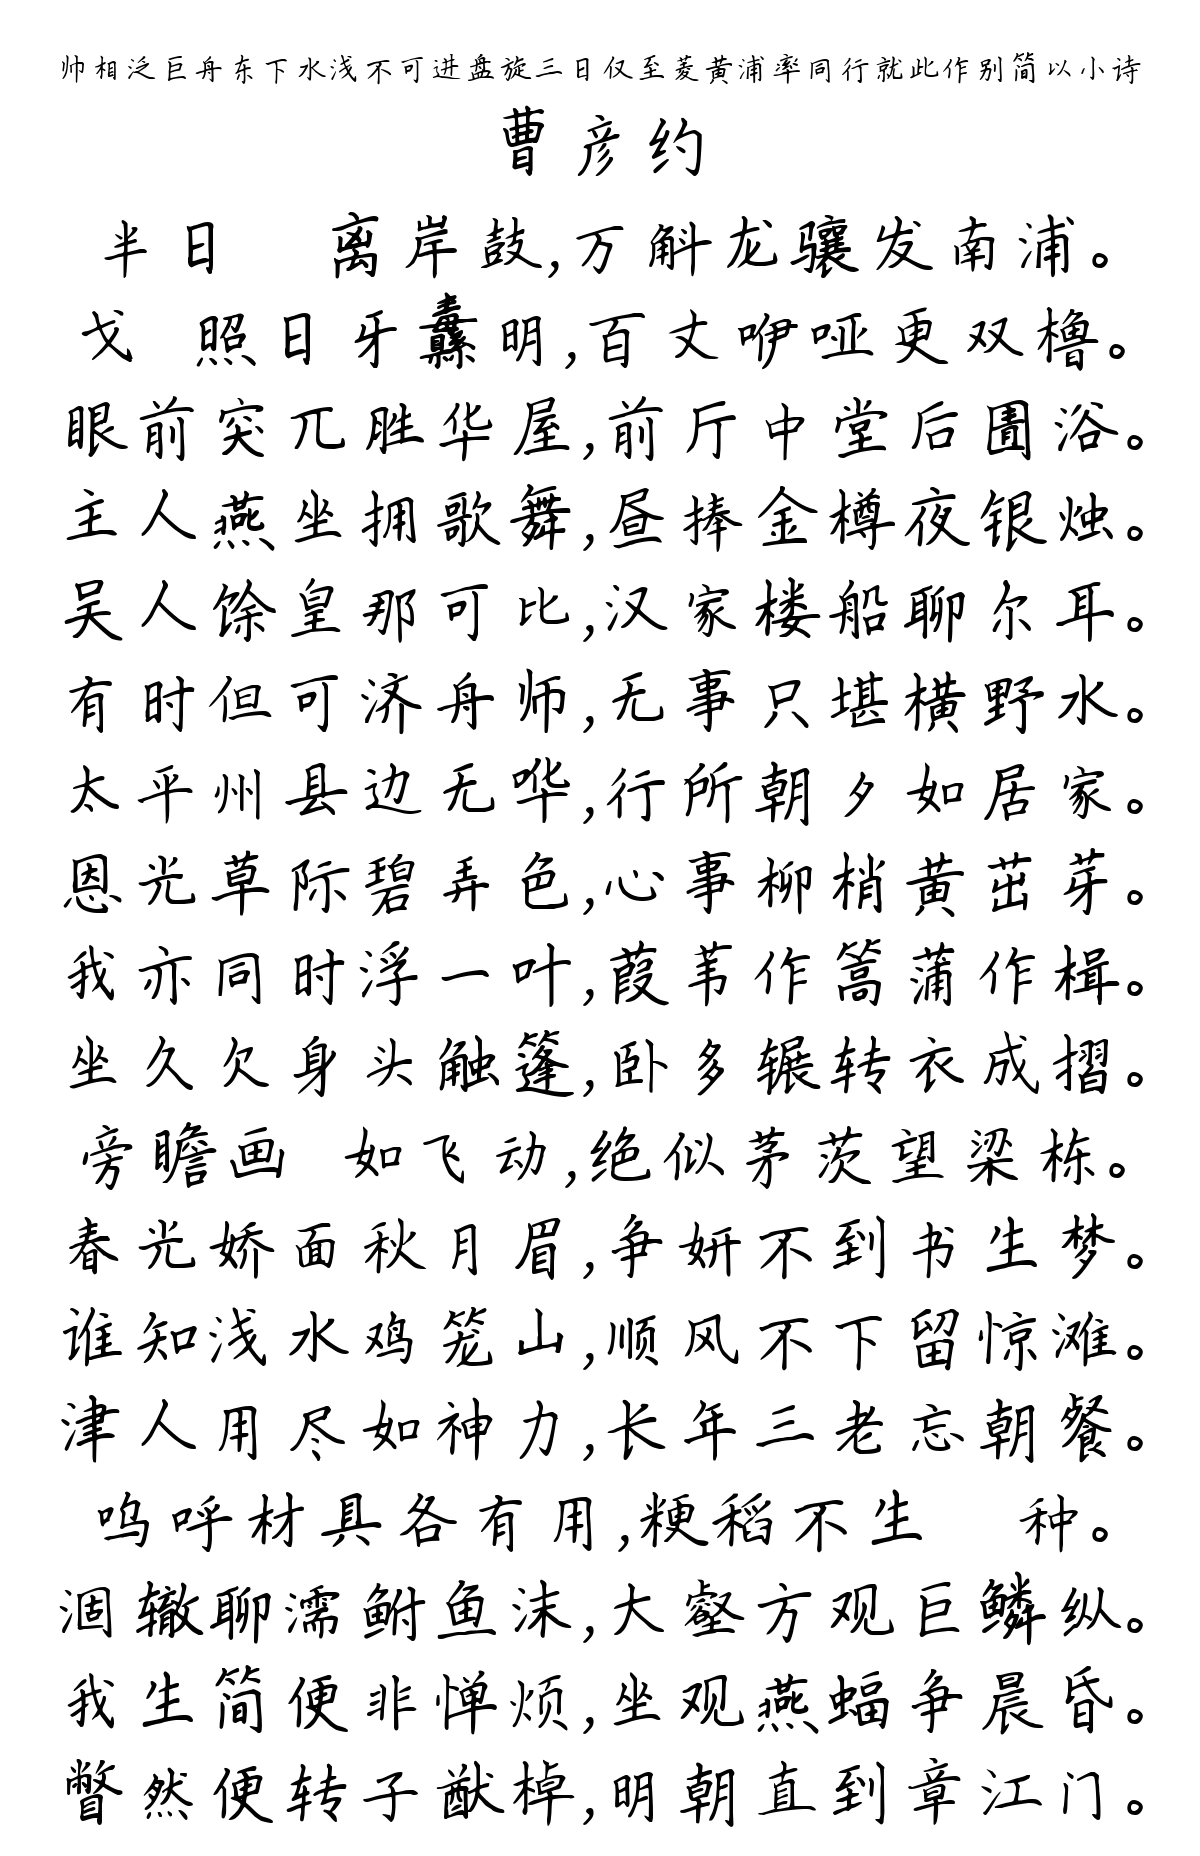 帅相泛巨舟东下水浅不可进盘旋三日仅至菱黄浦率同行就此作别简以小诗
曹彦约
半日 离岸鼓,万斛龙骧发南浦。
戈 照日牙纛明,百丈咿哑更双橹。
眼前突兀胜华屋,前厅中堂后圊浴。
主人燕坐拥歌舞,昼捧金樽夜银烛。
吴人馀皇那可比,汉家楼船聊尔耳。
有时但可济舟师,无事只堪横野水。
太平州县边无哗,行所朝夕如居家。
恩光草际碧弄色,心事柳梢黄茁芽。
我亦同时浮一叶,葭苇作篙蒲作楫。
坐久欠身头触篷,卧多辗转衣成摺。
旁瞻画 如飞动,绝似茅茨望梁栋。
春光娇面秋月眉,争妍不到书生梦。
谁知浅水鸡笼山,顺风不下留惊滩。
津人用尽如神力,长年三老忘朝餐。
呜呼材具各有用,粳稻不生 种。
涸辙聊濡鲋鱼沫,大壑方观巨鳞纵。
我生简便非惮烦,坐观燕蝠争晨昏。
瞥然便转子猷棹,明朝直到章江门。